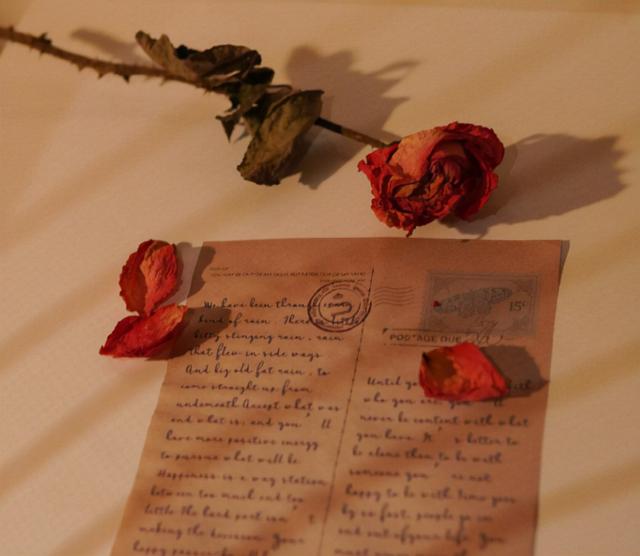 We have been through every
kind of rain. There is little
bitty stinging rain, rain
that flew in side ways
And big old fat rain, to
come straight up from
underneath Accept what was
and what is; and you' ll
have more positive energy
to pursue what will be.
Happiness is a way station
between too much and too
little The hard part isn' t
making the decision. Your
happy
15¢
POSTAGE DUE
Until yo with
who you are, you' ll
never be content with what
you have. It' s better to
be alone than to be with
someone you' re not
happy to be with Time goes
by so fast, people go in
and out of your life. You
must